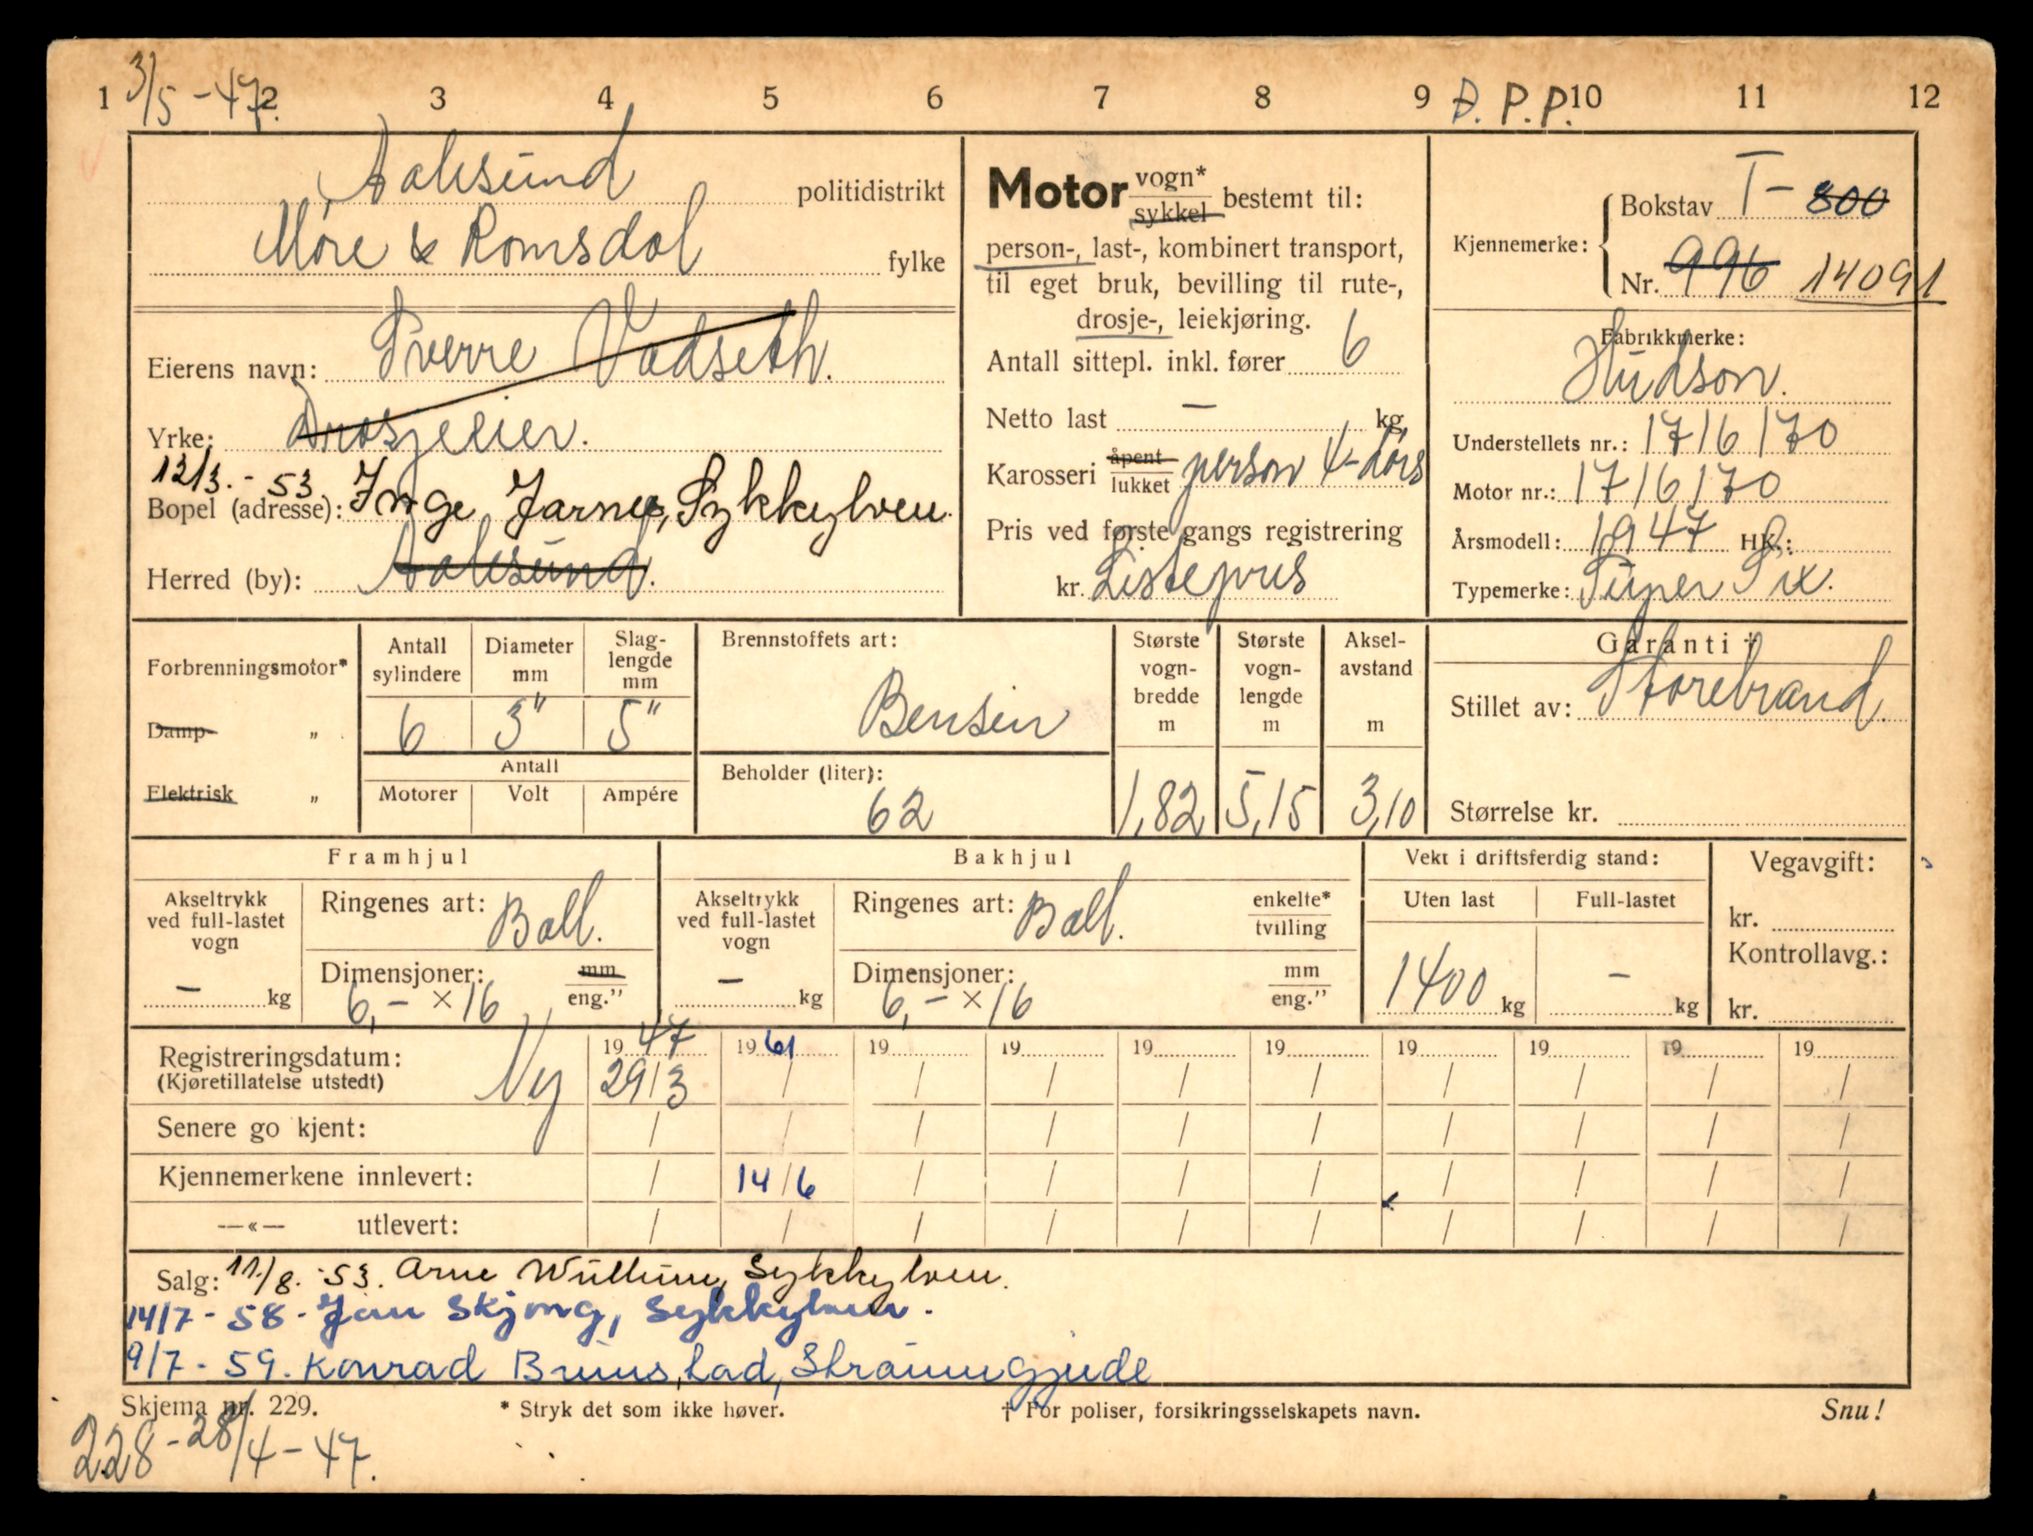 1 3/5 - 47. 2 3 4 5 6 7 8 9 D. P.P. 10 11 12
Aalesund politidistrikt
Møre & Romsdal fylke
Eierens navn: Sverre Vadseth.
Yrke: Drosjeeier.
12/3. - 53
Bopel (adresse): Inge Jarnes, Sykkylven.
Herred (by): Aalesund.
Motor vogn* sykkel bestemt til:
person-, last-, kombinert transport,
til eget bruk, bevilling til rute-,
drosje-, leiekjøring.
Antall sittepl. inkl. fører 6
Netto last — kg
Karosseri åpent lukket person 4-dørs
Pris ved første gangs registrering
kr. Listepris
Kjennemerke: Bokstav T - 800
Nr. 996 14091
Fabrikkmerke:
Hudson.
Understellets nr.: 1716170
Motor nr.: 1716170
Årsmodell: 1947 HK.:
Typemerke: Super Six.
Forbrenningsmotor*
Damp- „
Elektrisk „
Antall sylindere Diameter mm Slag-lengde mm
6 3" 5"
Antall
Motorer Volt Ampére
Brennstoffets art:
Bensin
Beholder (liter):
62
Største vogn-bredde m Største vogn-lengde m Aksel-avstand m
1,82 5,15 3,10
Garanti †
Stillet av: Storebrand.
Størrelse kr.
Framhjul
Akseltrykk ved full-lastet vogn
— kg
Ringenes art: Ball.
Dimensjoner: mm eng."
6,- × 16
Bakhjul
Akseltrykk ved full-lastet vogn
— kg
Ringenes art: Ball. enkelte* tvilling
Dimensjoner: mm eng."
6,- × 16
Vekt i driftsferdig stand:
Uten last Full-lastet
1400 kg — kg
Vegavgift:
kr.
Kontrollavg.:
kr.
Registreringsdatum: Ny 1947 1961 19 19 19 19 19 19 19 19
(Kjøretillatelse utstedt) 29/3 / / / / / / / / /
Senere go kjent: / / / / / / / / / /
Kjennemerkene innlevert: / 14/6 / / / / / / / /
—«— utlevert: / / / / / / / / / /
Salg: 11./8. -53. Arne Wullum, Sykkylven.
14/7 - 58 - Jan Skjong, Sykkylven.
9/7 - 59. Konrad Brunstad, Straumgjude
Skjema nr. 229. * Stryk det som ikke høver. † For poliser, forsikringsselskapets navn. Snu!
228 - 28/4 - 47.